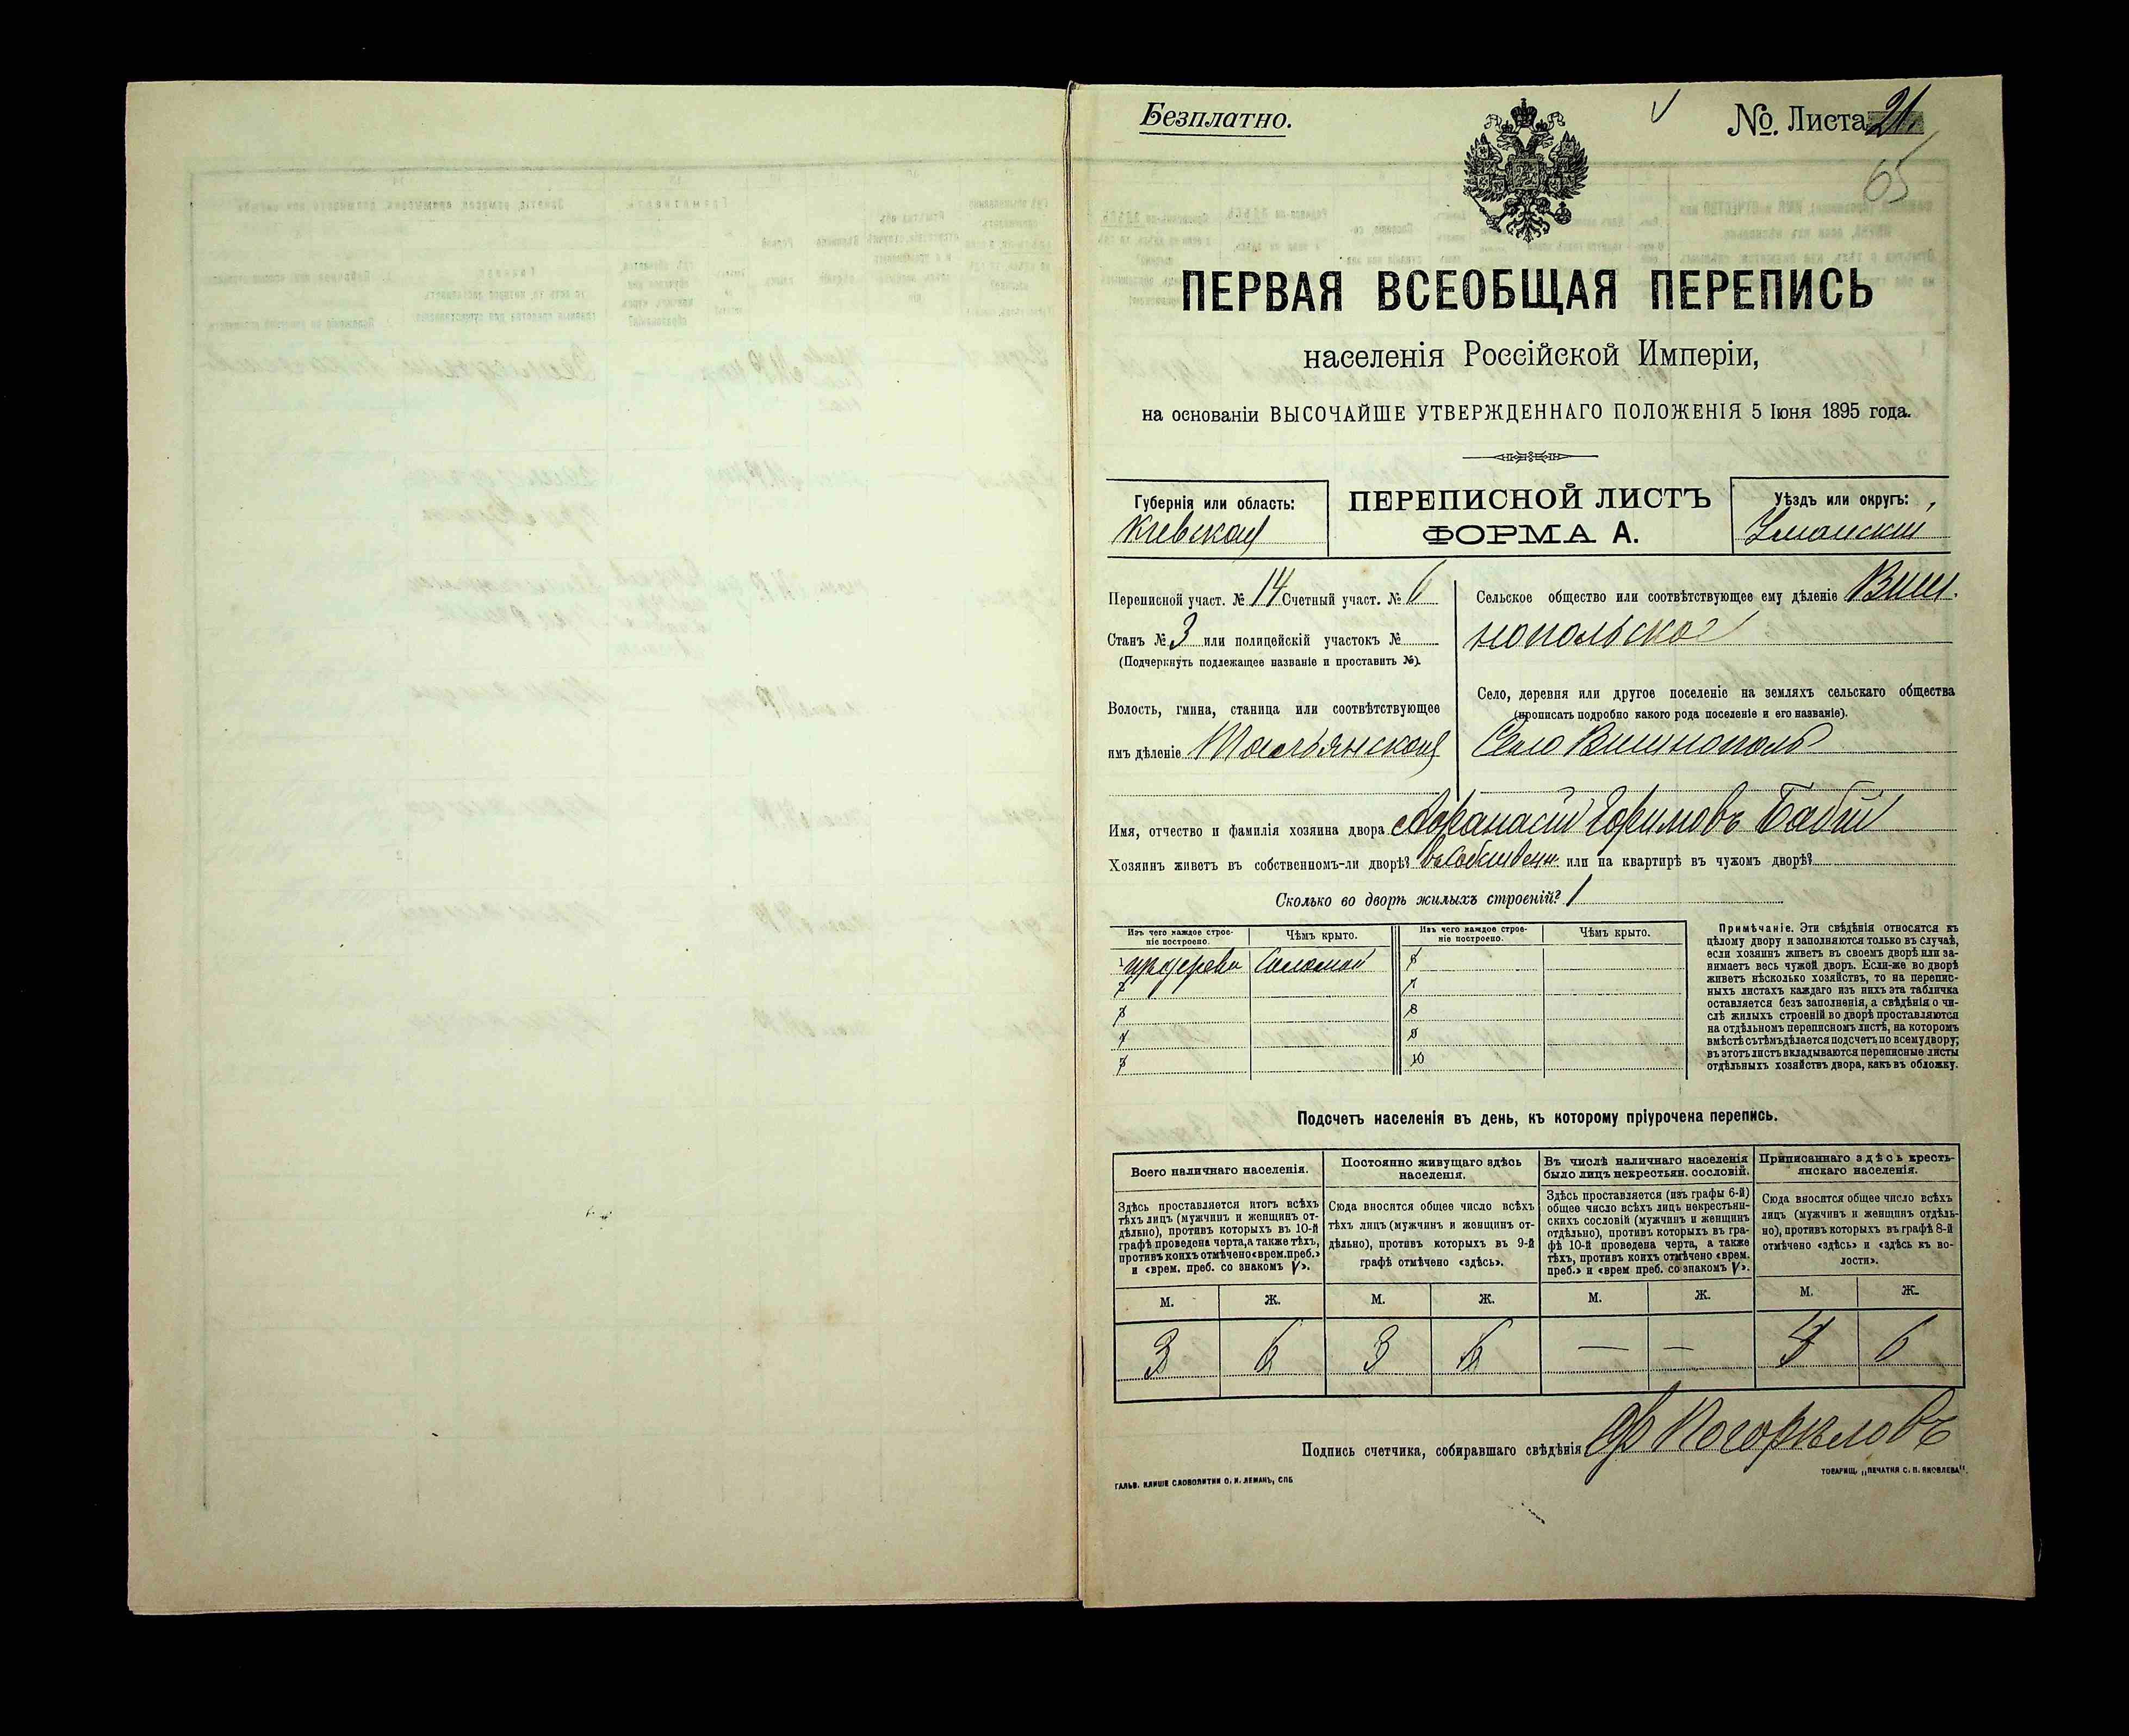 Безплатно.
№. Листа 21.
65
ПЕРВАЯ ВСЕОБЩАЯ ПЕРЕПИСЬ
населенія Россійской Имперіи,
на основаніи ВЫСОЧАЙШЕ УТВЕРЖДЕННАГО ПОЛОЖЕНІЯ 5 Іюня 1895 года.
Губернія или область:
Кіевская
ПЕРЕПИСНОЙ ЛИСТЪ
ФОРМА А.
Уѣздъ или округъ:
Уманскій
Переписной участ. № 14 Счетный участ. № 6
Станъ № 3 или полицейскій участокъ №
(Подчеркнуть подлежащее названіе и проставить №).
Волость, гмина, станица или соотвѣтствующее
имъ дѣленіе Тальянская
Сельское общество или соотвѣтствующее ему дѣленіе Виш
нопольское
Село, деревня или другое поселеніе на земляхъ сельскаго общества
(прописать подробно какого рода поселеніе и его названіе).
Село Вишнополь
Имя, отчество и фамилія хозяина двора Афанасій Ефимовъ Бабій
Хозяинъ живетъ въ собственномъ-ли дворѣ? въ собственн. или на квартирѣ въ чужомъ дворѣ?
Сколько во дворѣ жилыхъ строеній? 1
Изъ чего каждое строе-
ніе построено.
Чѣмъ крыто.
Изъ чего каждое строе-
ніе построено.
Чѣмъ крыто.
1 изъ дерева Соломой 6
2 7
3 8
4 9
5 10
Примѣчаніе. Эти свѣдѣнія относятся къ
цѣлому двору и заполняются только въ случаѣ,
если хозяинъ живетъ въ своемъ дворѣ или за-
нимаетъ весь чужой дворъ. Если-же во дворѣ
живетъ нѣсколько хозяйствъ, то на перепис-
ныхъ листахъ каждаго изъ нихъ эта табличка
оставляется безъ заполненія, а свѣдѣнія о чи-
слѣ жилыхъ строеній во дворѣ проставляются
на отдѣльномъ переписномъ листѣ, на которомъ
вмѣстѣ съ тѣмъ дѣлается подсчетъ по всему двору;
въ этотъ листъ вкладываются переписные листы
отдѣльныхъ хозяйствъ двора, какъ въ обложку.
Подсчетъ населенія въ день, къ которому пріурочена перепись.
Всего наличнаго населенія.
Здѣсь проставляется итогъ всѣхъ
тѣхъ лицъ (мужчинъ и женщинъ от-
дѣльно), противъ которыхъ въ 10-й
графѣ проведена черта, а также тѣхъ,
противъ коихъ отмѣчено «врем. преб.»
и «врем. преб. со знакомъ V».
Постоянно живущаго здѣсь
населенія.
Сюда вносятся общее число всѣхъ
тѣхъ лицъ (мужчинъ и женщинъ от-
дѣльно), противъ которыхъ въ 9-й
графѣ отмѣчено «здѣсь».
Въ числѣ наличнаго населенія
было лицъ некрестьян. сословій.
Здѣсь проставляется (изъ графы 6-й)
общее число всѣхъ лицъ некрестьян-
скихъ сословій (мужчинъ и женщинъ
отдѣльно), противъ которыхъ въ гра-
фѣ 10-й проведена черта, а также
тѣхъ, противъ коихъ отмѣчено «врем.
преб.» и «врем преб. со знакомъ V».
Приписаннаго здѣсь кресть-
янскаго населенія.
Сюда вносятся общее число всѣхъ
лицъ (мужчинъ и женщинъ отдѣль-
но), противъ которыхъ въ графѣ 8-й
отмѣчено «здѣсь» и «здѣсь къ во-
лости».
М. Ж. М. Ж. М. Ж. М. Ж.
3 6 3 6 — — 3 6
Подпись счетчика, собиравшаго свѣдѣнія Погорѣловъ
ГАЛЬВ. КЛИШЕ СЛОВОЛИТНИ О. И. ЛЕМАНЪ, СПБ
ТОВАРИЩ. „ПЕЧАТНЯ С. П. ЯКОВЛЕВА".